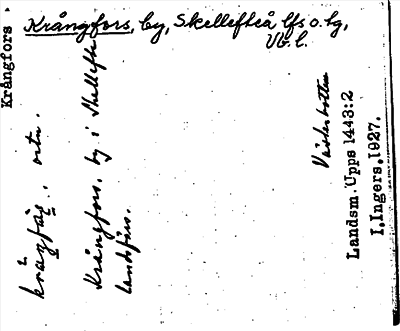 Krångfors
Krångfors, by, Skellefteå lfs o. hg,
Vb. l.
ortn.
Krångfors, by i Skellefte
landsförs.
Västerbotten
Landsm. Upps 1443:2
I. Ingers. 1927.